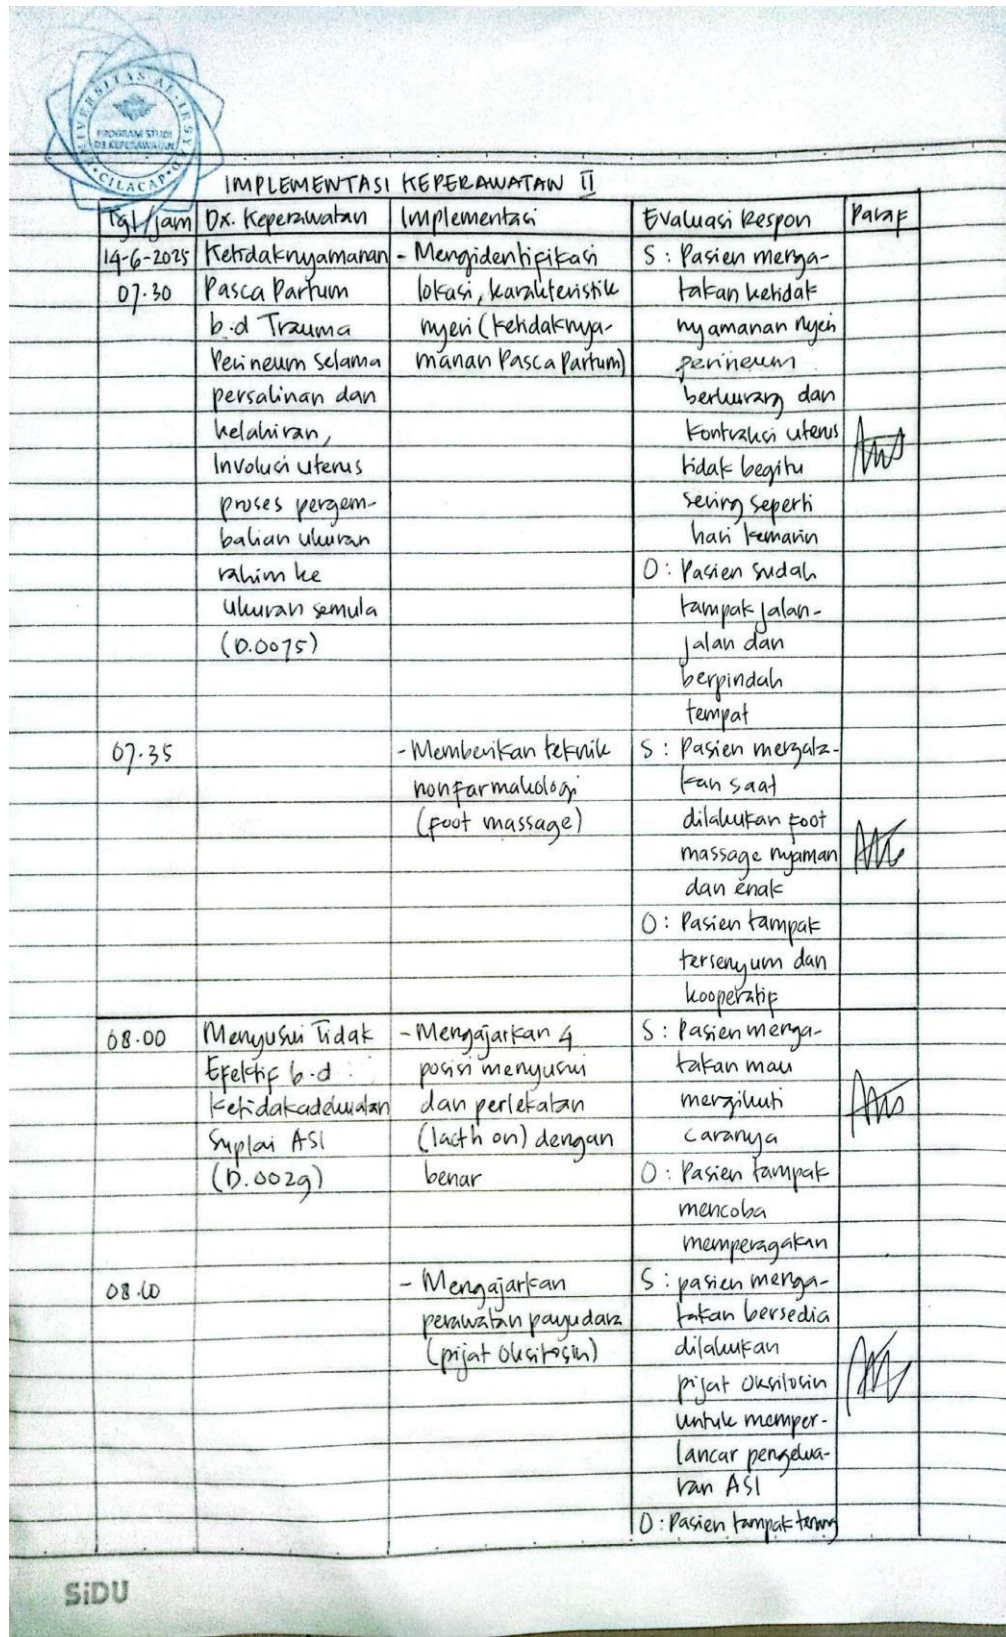 UNIVERSITAS AL-IRSYAD
PROGRAM STUDI
D3 KEPERAWATAN
CILACAP
IMPLEMENTASI KEPERAWATAN II
Tgl/jam
Dx. Keperawatan
Implementasi
Evaluasi Respon
Paraf
14-6-2025
07.30
Ketidaknyamanan
Pasca Partum
b.d Trauma
Perineum selama
persalinan dan
kelahiran,
Involusi uterus
proses pengem-
balian ukuran
rahim ke
ukuran semula
(D.0075)
- Mengidentifikasi
lokasi, karakteristik
nyeri (ketidaknya-
manan Pasca Partum)
S : Pasien menga-
takan ketidak
nyamanan nyeri
perineum
berkurang dan
kontraksi uterus
tidak begitu
sering seperti
hari kemarin
O : Pasien sudah
tampak jalan-
jalan dan
berpindah
tempat
07.35
- Memberikan teknik
nonfarmakologi
(foot massage)
S : Pasien mengata-
kan saat
dilakukan foot
massage nyaman
dan enak
O : Pasien tampak
tersenyum dan
kooperatif
08.00
Menyusui Tidak
Efektif b.d :
Ketidakadekuatan
Suplai ASI
(D.0029)
- Mengajarkan 4
posisi menyusui
dan perlekatan
(lacth on) dengan
benar
S : Pasien menga-
takan mau
mengikuti
caranya
O : Pasien tampak
mencoba
memperagakan
08.10
- Mengajarkan
perawatan payudara
(pijat oksitosin)
S : pasien menga-
takan bersedia
dilakukan
pijat oksitosin
untuk memper-
lancar pengelua-
ran ASI
O : Pasien tampak tenang
SiDU